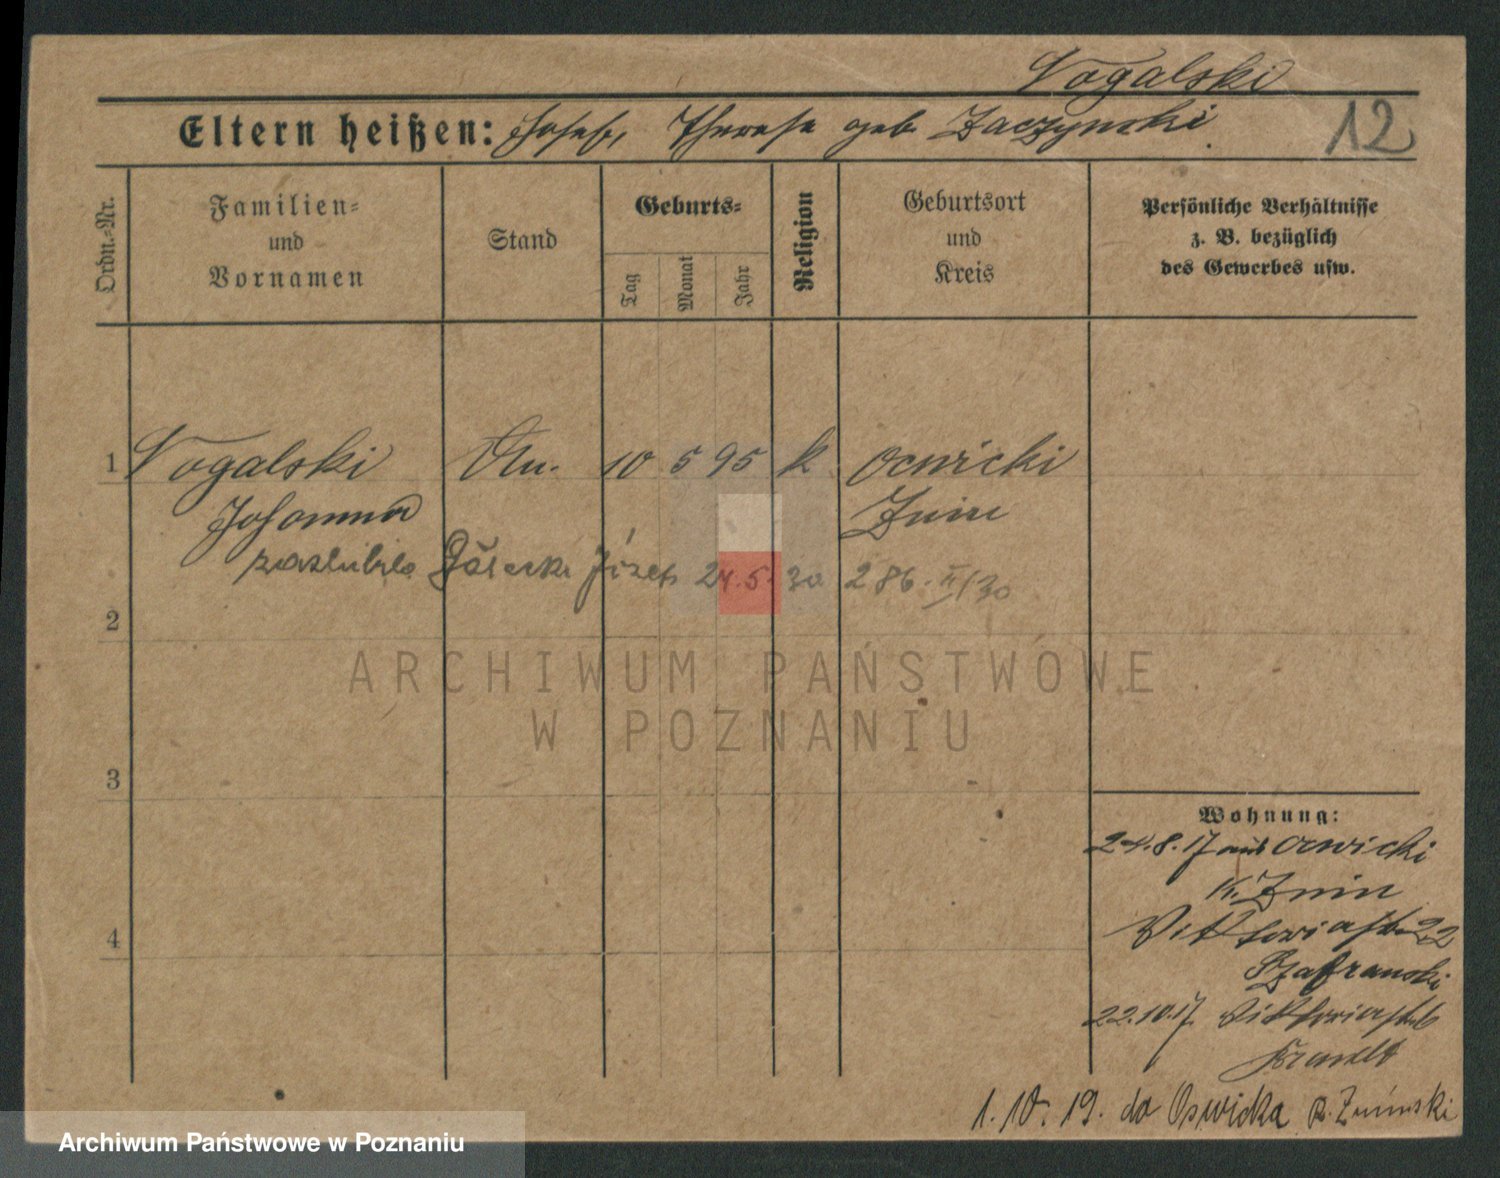 Vogalski
Eltern heißen: Josef, Therese geb. Zaczynski
12
Ordn.-Nr.
Familien-
und
Vornamen
Stand
Geburts-
Tag
Monat
Jahr
Religion
Geburtsort
und
Kreis
Persönliche Verhältnisse
z. B. bezüglich
des Gewerbes usw.
1 Vogalski 10 5 95 k Ocwicki
Johanna Znin
zaślubiła Józef 24.5.30 286. II/30
2
ARCHIWUM PAŃSTWOWE
W POZNANIU
3
Wohnung:
24.8.17 aus Ocwicki
K. Znin
Viktoriastr 22
Szafranski
22.10.17 Viktoriastr 6
Brandt
4
1.10.19. do Oswicka p. Zninski
Archiwum Państwowe w Poznaniu